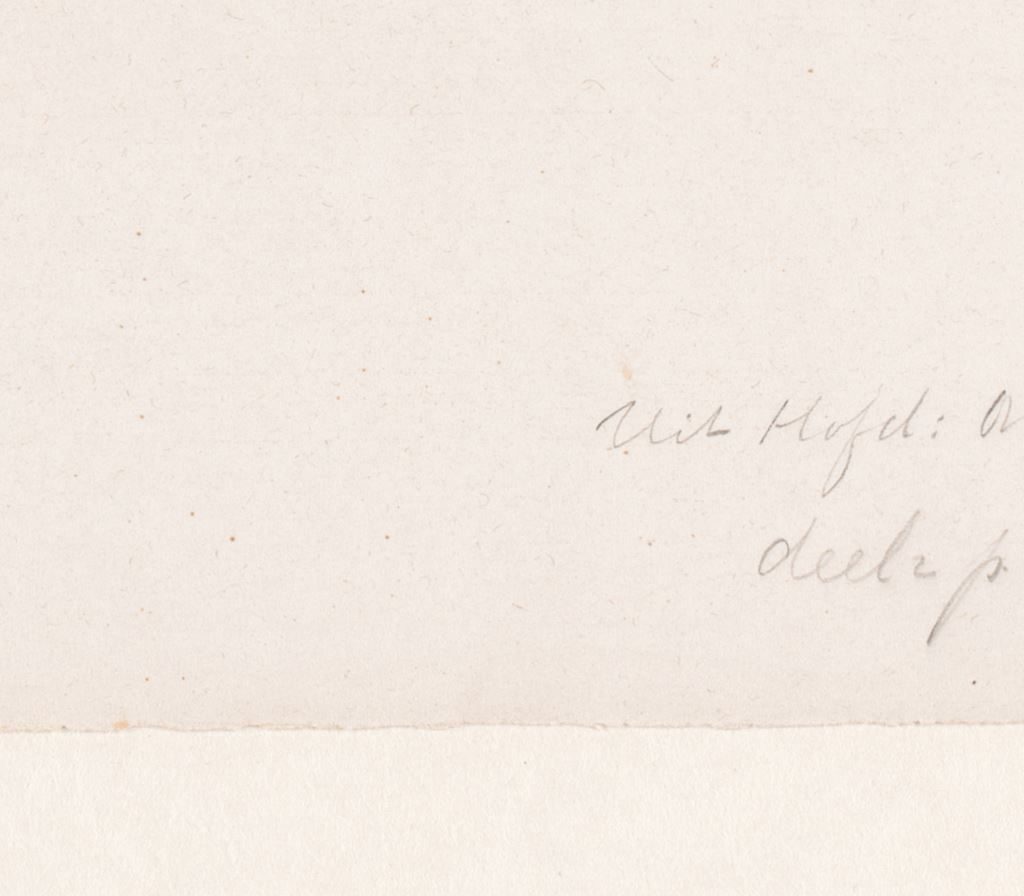 Uit Hofd:
deel 2 p.